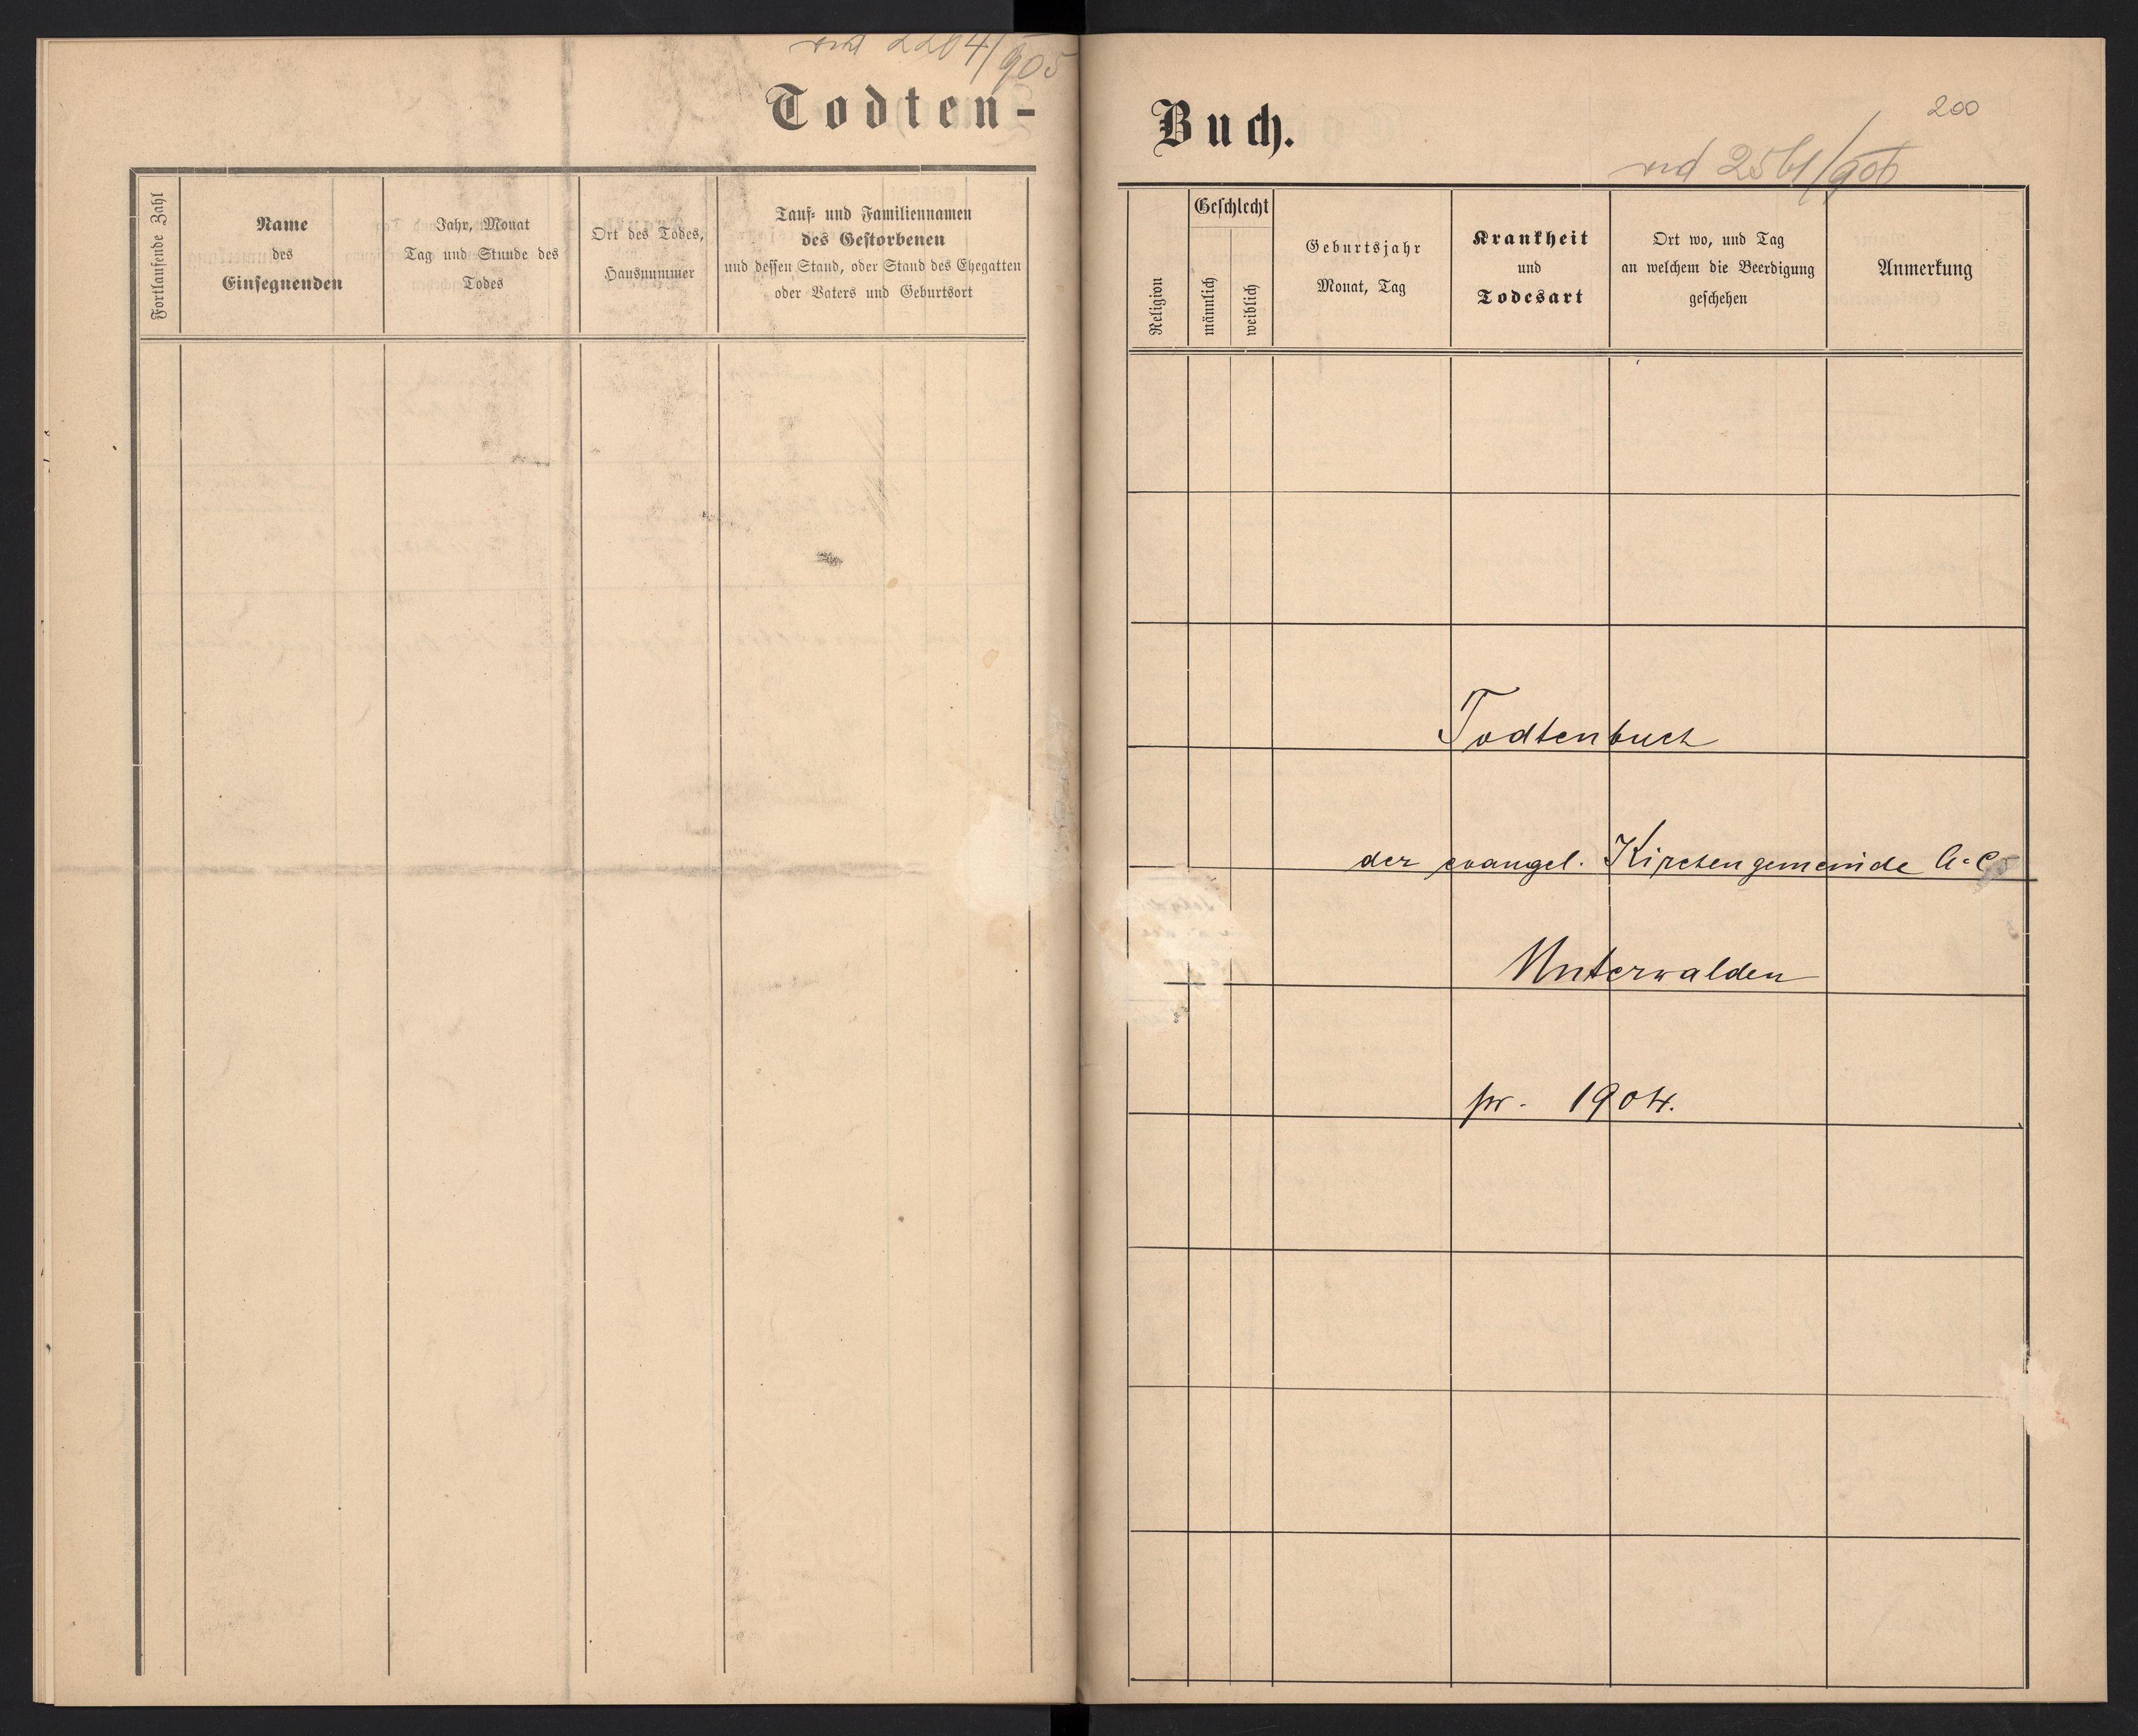 2204/905
Todten-
Fortlaufende Zahl
Name
des
Einsegnenden
Jahr, Monat
Tag und Stunde des
Todes
Ort des Todes,
Hausnummer
Tauf- und Familiennamen
des Gestorbenen
und dessen Stand, oder Stand des Ehegatten
oder Vaters und Geburtsort
200
Buch.
2561/906
Religion
Geschlecht
männlich
weiblich
Geburtsjahr
Monat, Tag
Krankheit
und
Todesart
Ort wo, und Tag
an welchem die Beerdigung
geschehen
Anmerkung
Todtenbuch
der evangel. Kirchengemeinde A. C.
Unterwalden
pr. 1904.